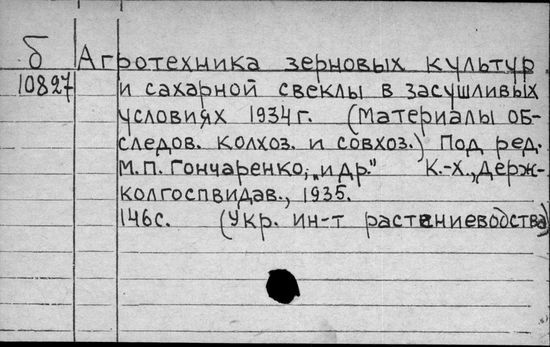 б Агротехника зерновых культур
10827 и сахарной свеклы в засушливых
условиях 1934 г. (Материалы об-
следов. колхоз. и совхоз.) Под ред.
М.П. Гончаренко, „и др." К.-Х., Держ-
колгоспвидав., 1935.
146с. (Укр. ин-т растениеводства)